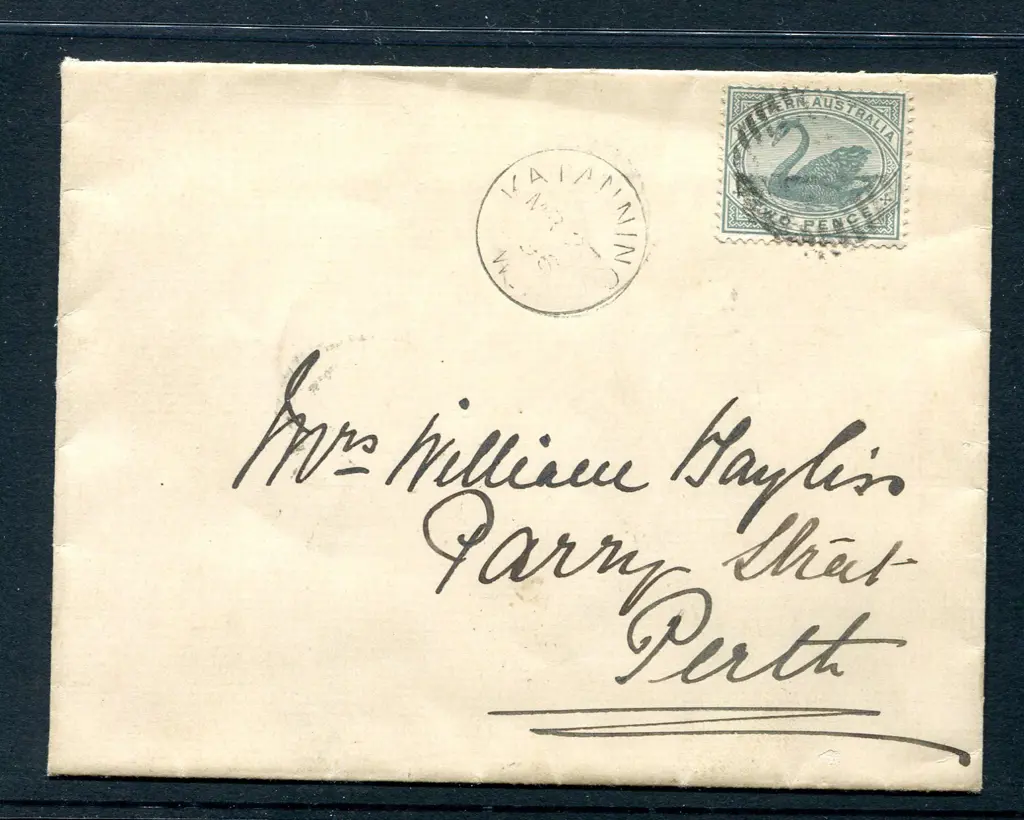 WESTERN AUSTRALIA
TWO PENCE
KATANNING
Mrs William Bayliss
Parry Street
Perth